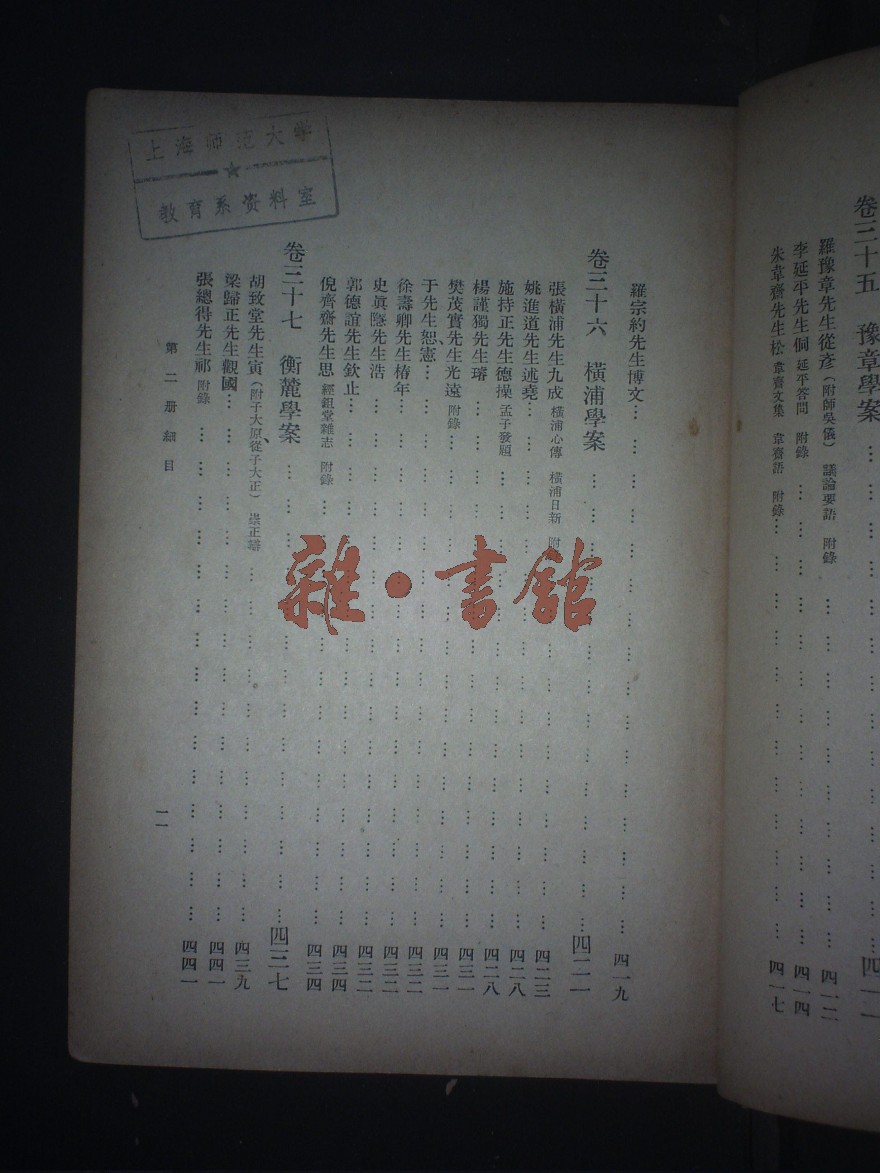 卷三十五　豫章學案……
羅豫章先生從彥（附師吳儀）　議論要語　附錄……四一二
李延平先生侗　延平答問　附錄……四一四
朱韋齋先生松　韋齋文集　韋齋語　附錄……四一七
羅宗約先生博文……四一九
卷三十六　橫浦學案……四二一
張橫浦先生九成　橫浦心傳　橫浦日新　附……四二三
姚進道先生述堯……四二八
施持正先生德操　孟子發題……四二八
楊謹獨先生璿……四三一
樊茂實先生光遠　附錄……四三一
于先生恕、憲……四三二
徐壽卿先生椿年……四三二
史眞隱先生浩……四三二
郭德誼先生欽止……四三四
倪齊齋先生思　經鉏堂雜志　附錄……四三四
卷三十七　衡麓學案……四三七
胡致堂先生寅（附子大原、從子大正）　崇正辯……四三九
梁歸正先生觀國……四四一
張總得先生祁　附錄……四四一
第二册細目
一一
上海师范大学
教育系资料室
雜·書館